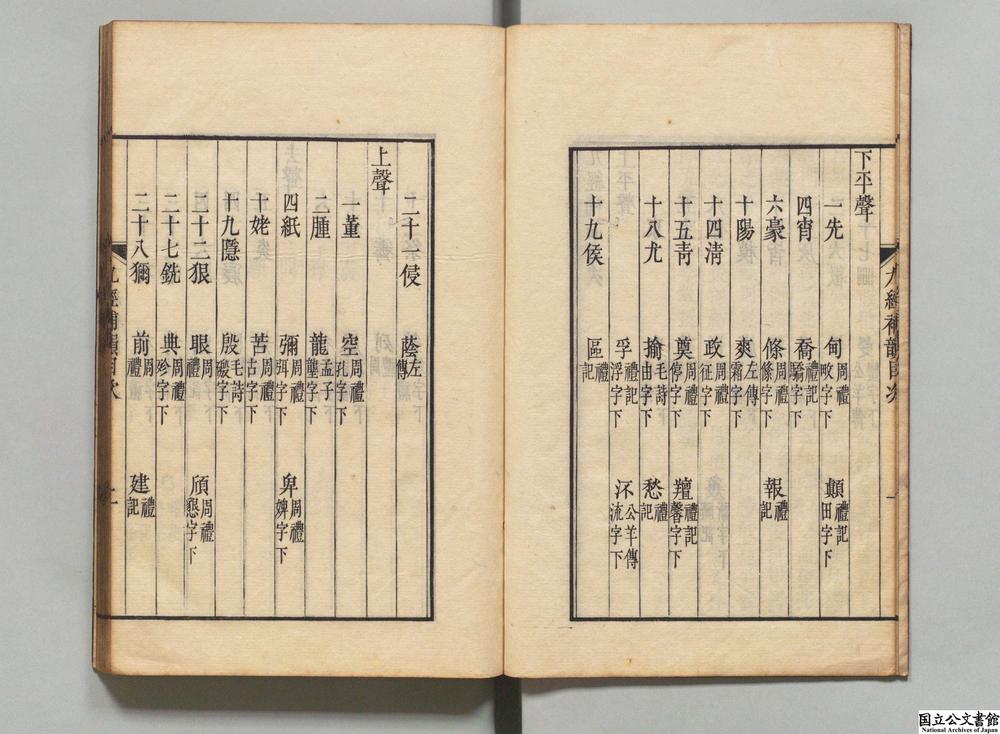 下平聲
一先 甸 周禮 畋字下 顛 禮記 田字下
四宵 喬 禮記 驕字下
六豪 條 周禮 絛字下 報 禮記
十陽 爽 左傳 霜字下
十四淸 政 周禮 征字下
十五靑 奠 周禮 停字下 羶 禮記 馨字下
十八尤 揄 毛詩 由字下 愁 禮記
孚 禮記 浮字下 汓 公羊傳 流字下
十九侯 區 禮記
二十一侵 蔭 左傳
上聲
一董 空 周禮 孔字下
二腫 龍 孟子 壟字下
四紙 彌 周禮 弭字下 卑 周禮 婢字下
十姥 苦 周禮 古字下
十九隱 殷 毛詩 字下
二十二狠 眼 周禮 字下 頎 周禮 懇字下
二十七銑 典 周禮 殄字下
二十八獮 前 周禮 建 禮記
九經補韻目次 一
九經補韻目次 二
国立公文書館
National Archives of Japan